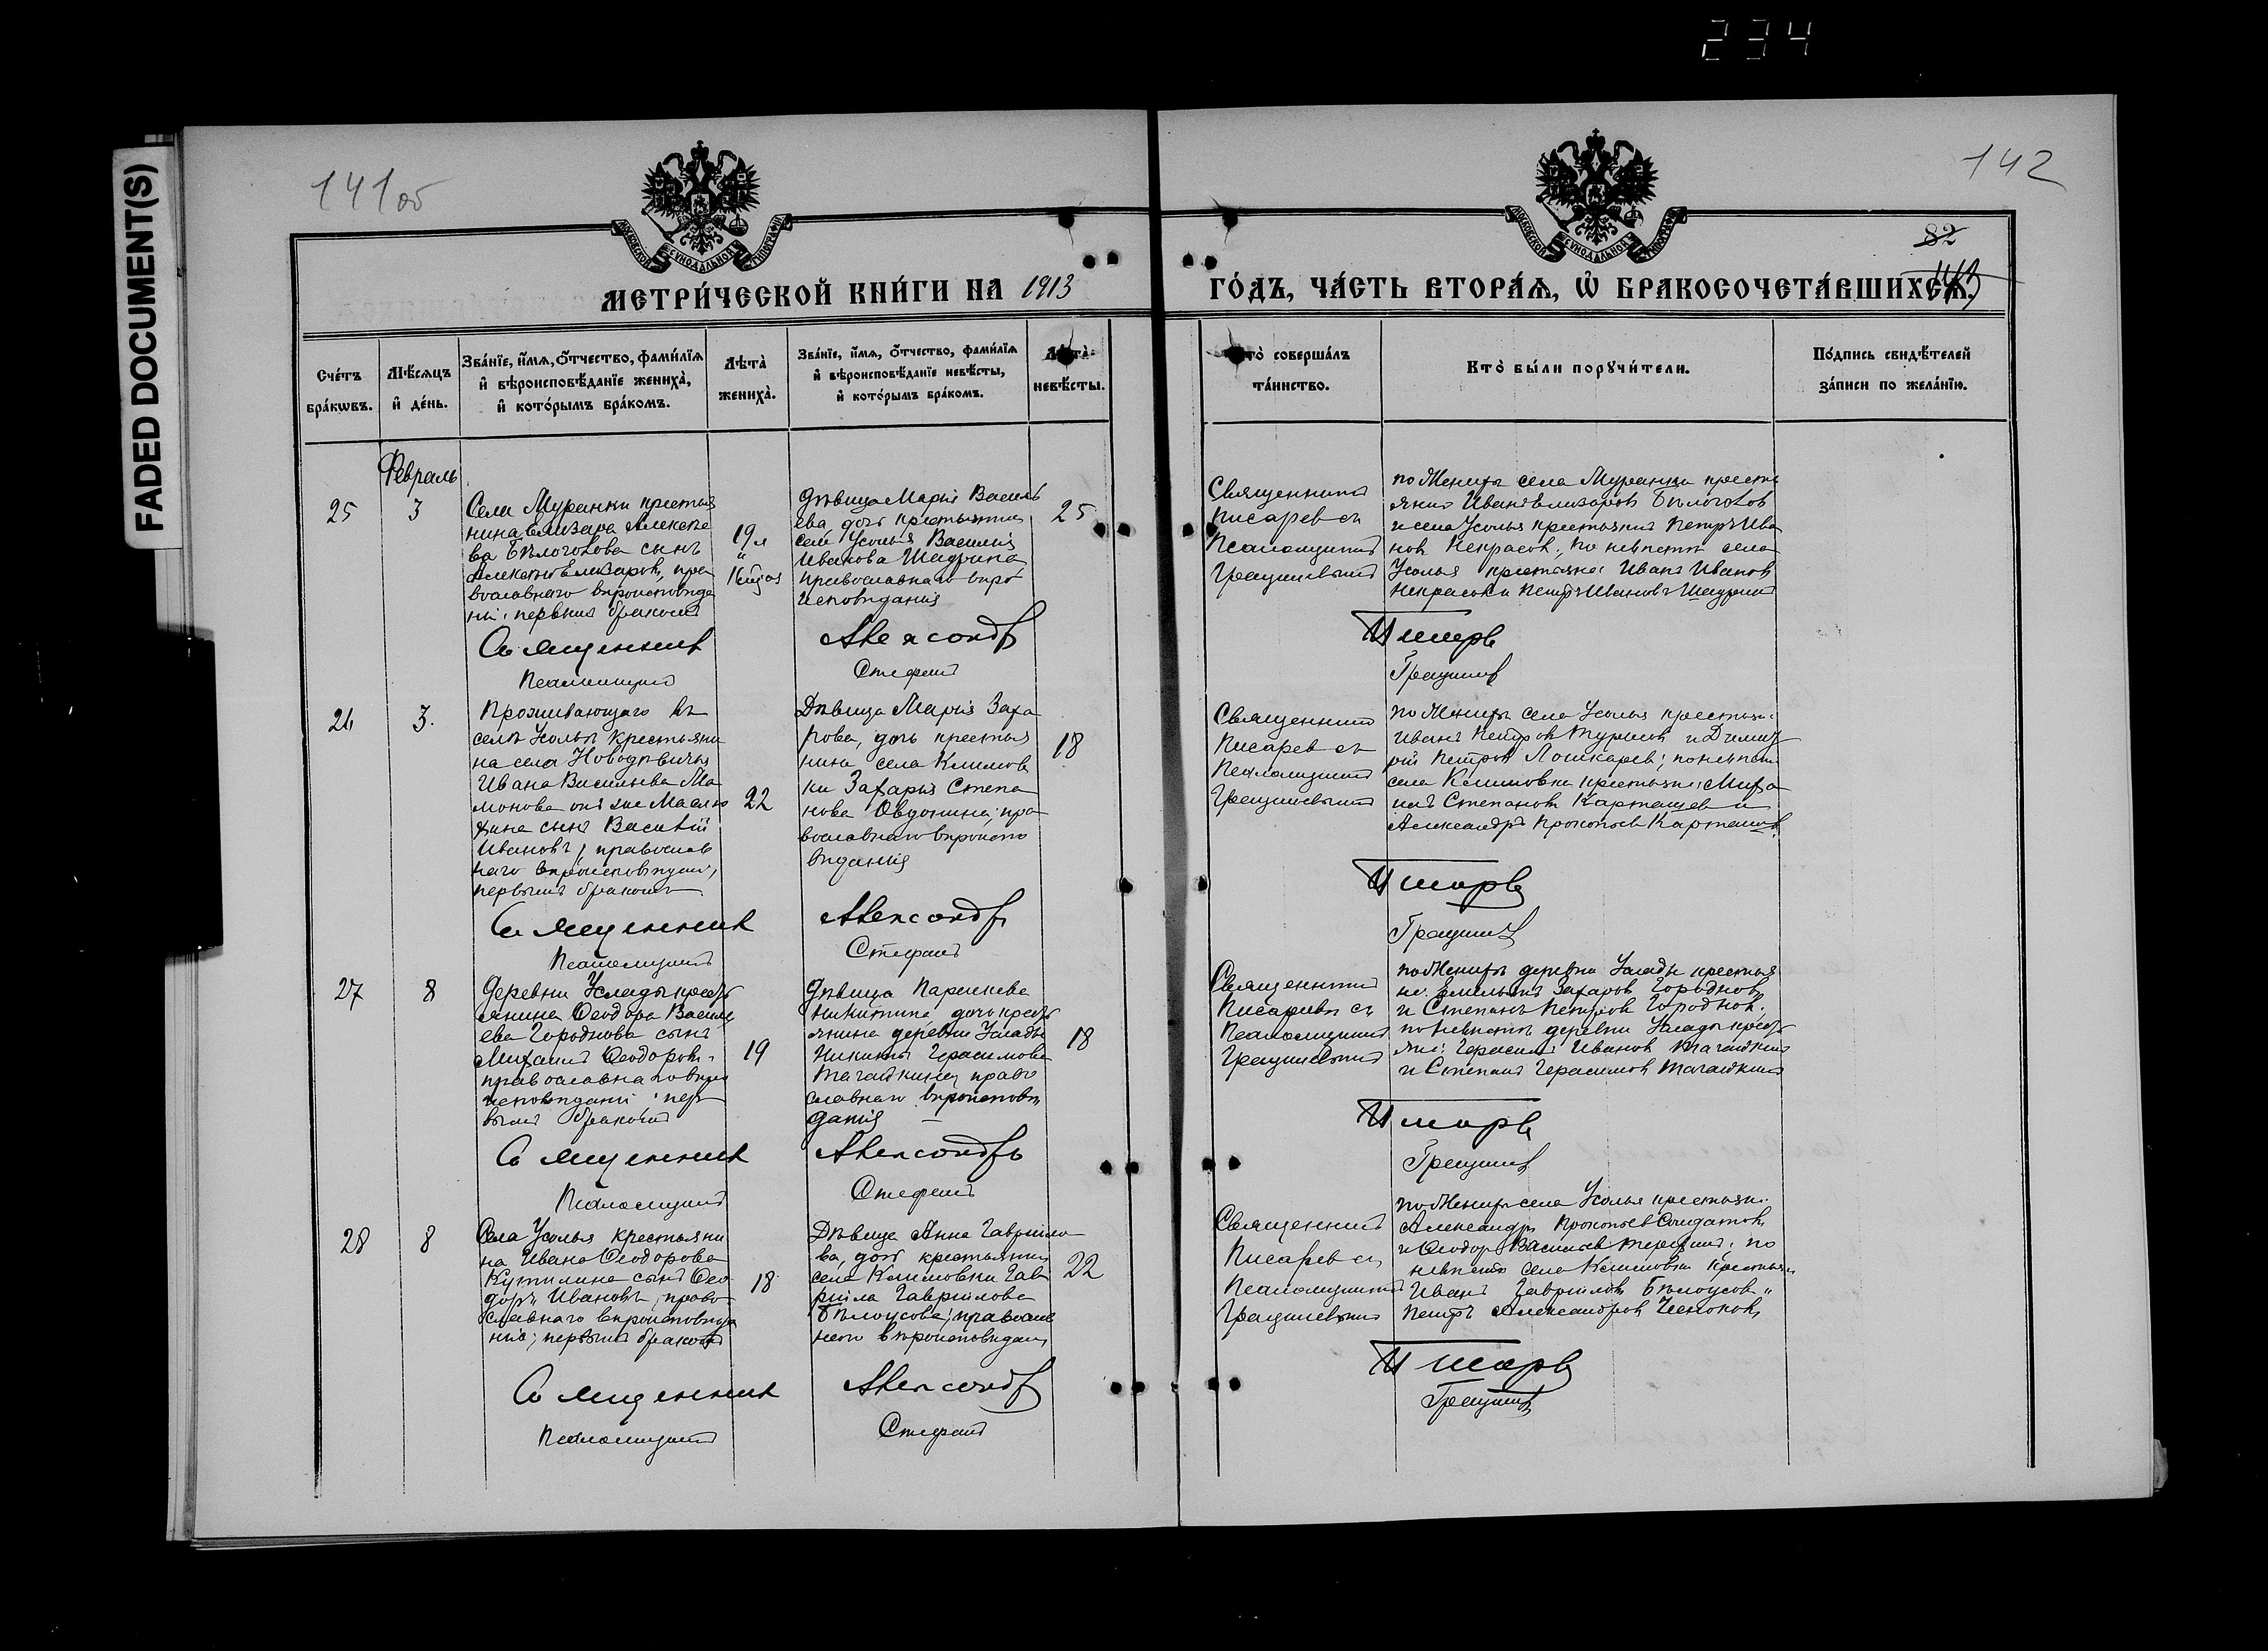 234
FADED DOCUMENT(S)
141об
142
82
МОСКОВСКОЙ СѴНОДАЛЬНОЙ ТИПОГРАФІИ
МОСКОВСКОЙ СѴНОДАЛЬНОЙ ТИПОГРАФІИ
МЕТРИ́ЧЕСКОЙ КНИ́ГИ НА 1913
ГО́ДЪ, ЧА́СТЬ ВТОРА́Ѧ, Ѡ҆ БРАКОСОЧЕТА́ВШИХСѦ.
Сче́тъ
бра́кѡвъ.
Мѣ́сѧцъ
и҆ де́нь.
Зва́нїе, и҆́мѧ, ѻ҆́тчество, фами́лїѧ
и҆ вѣроисповѣ́данїе жениха̀,
и҆ кото́рымъ бра́комъ.
Лѣ́та̀
жениха̀.
Зва́нїе, и҆́мѧ, ѻ҆́тчество, фами́лїѧ
и҆ вѣроисповѣ́данїе невѣ́сты,
и҆ кото́рымъ бра́комъ.
Лѣ́та̀
невѣ́сты.
Кто̀ соверша́лъ
та́инство.
Кто̀ бы́ли порꙋчи́тели.
По́дпись свидѣ́телей
за́писи по жела́нїю.
Февраль
25
3
Села Муранки крестья
нина Елизара Алексее
ва Бѣлоголова сынъ
Алексѣй Елизаровъ, пра
вославнаго вѣроисповѣда
нія, первымъ бракомъ
19 л
Дѣвица Марія Василь
ева, дочь крестьянина
села Усолья Василія
Иванова Шадрина
православнаго вѣро
исповѣданія
25
Священникъ
Писаревъ съ
Псаломщикомъ
Грацилевымъ
По Женихѣ села Муранки кресть
янинъ Иванъ Елизаровъ Бѣлоголовъ
и села Усолья крестьянинъ Петръ Ива
новъ Некрасовъ; по невѣстѣ села
Усолья крестьяне: Иванъ Ивановъ
Некрасовъ и Петръ Ивановъ Шадринъ
Священникъ Александръ Писаревъ
Псаломщикъ Стефанъ
26
3.
Проживающаго въ
селѣ Усольѣ крестьяни
на села Новодѣвичья
Ивана Васильева Ма
монова онъ же Маслю
кина сынъ Василій
Ивановъ, православ
наго вѣроисповѣданія,
первымъ бракомъ
22
Дѣвица Марія Заха
рова, дочь крестья
нина села Климов
ки Захарія Степа
нова Овдонина, пра
вославнаго вѣроиспо
вѣданія
18
Священникъ
Писаревъ съ
Псаломщикомъ
Грацилевымъ
По Женихѣ села Усолья крестьяне:
Иванъ Петровъ и Димит
рій Петровъ Лошкаревъ; по невѣстѣ
села Климовки крестьяне: Миха
илъ Степановъ Карташевъ и
Александръ Прокопьевъ Карташовъ
Священникъ Александръ Писаревъ
Псаломщикъ Стефанъ
27
8
Деревни Услады кресть
янина Ѳеодора Василь
ева Городнова сынъ
Михаилъ Ѳеодоровъ,
православнаго вѣро
исповѣданія, пер
вымъ бракомъ
19
Дѣвица Параскева
Никитина, дочь кресть
янина деревни Услады
Никиты Герасимова
православнаго вѣроисповѣ
данія
18
Священникъ
Писаревъ съ
Псаломщикомъ
Грацилевымъ
По Женихѣ деревни Услады крестья
не: Емельянъ Захаровъ Городновъ
и Степанъ Петровъ Городновъ;
по невѣстѣ деревни Услады кресть
яне: Герасимъ Ивановъ
и Степанъ Герасимовъ
Священникъ Александръ Писаревъ
Псаломщикъ Стефанъ
28
8
Села Усолья крестьяни
на Ивана Ѳеодорова
Кутилина сынъ Ѳео
доръ Ивановъ, право
славнаго вѣроисповѣда
нія; первымъ бракомъ
18
Дѣвица Анна Гаврило
ва, дочь крестьянина
села Климовки Гав
ріила Гавріилова
Бѣлоусова; православ
наго вѣроисповѣданія
22
Священникъ
Писаревъ съ
Псаломщикомъ
Грацилевымъ
По Женихѣ села Усолья крестьяне:
Александръ Прокопьевъ Солдатовъ
и Ѳеодоръ Васильевъ; по
невѣстѣ села Климовки крестьяне
Иванъ Гавріиловъ Бѣлоусовъ и
Петръ Александровъ
Священникъ Александръ Писаревъ
Псаломщикъ Стефанъ